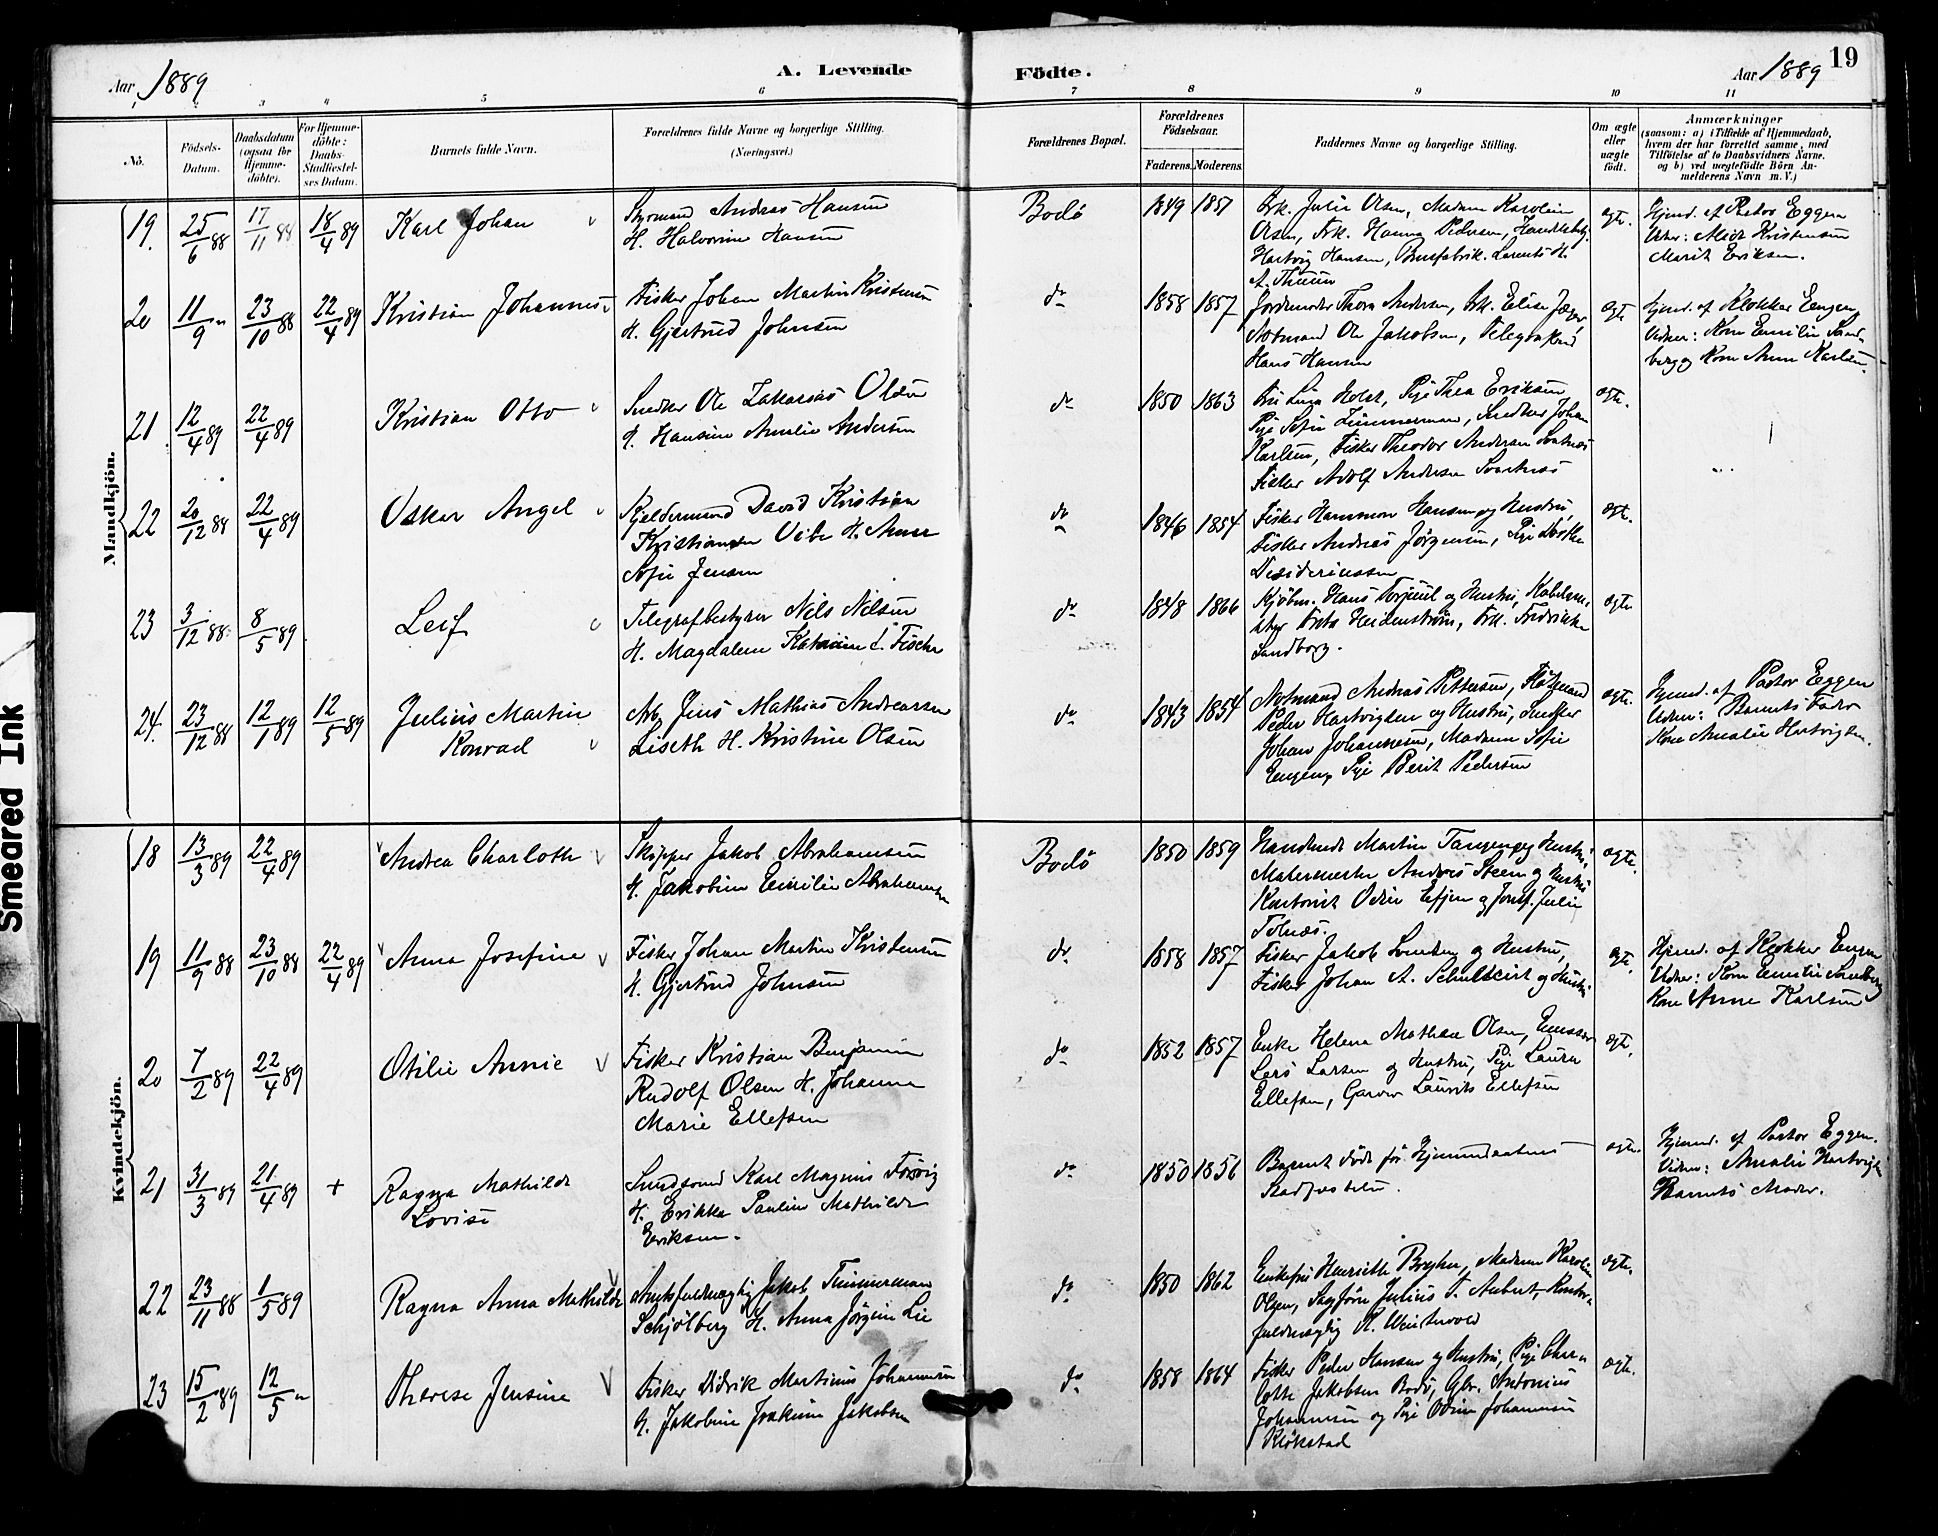 Aar 1889
A. Levende
Födte.
Aar 1889
19
3 4 5 6 7 8 9 10 11
No.
Födsels-Datum.
Daabsdatum (ogsaa for Hjemme-döbte).
For Hjemme-döbte: Daabs-Stadfæstel-ses Datum.
Barnets fulde Navn.
Forældrenes fulde Navne og borgerlige Stilling.
(Næringsvei.)
Forældrenes Bopæl.
Forældrenes Födselsaar.
Faderens. Moderens.
Faddernes Navne og borgerlige Stilling.
Om ægte eller uægte födt.
Anmærkninger
(saasom: a) i Tilfælde af Hjemmedaab,
hvem der har forrettet samme, med
Tilföielse af to Daabsvidners Navne.
og b) ved uegtefödte Börn An-
melderens Navn m. V.)
Mandkjön.
19. 25/6 88 17/11 88 18/4 89 Karl Johan
Styrmand Andreas Hansen
H. Halvorine Hansen
Bodö 1849 1851
Frk. Julie Olsen, Madam Karoline
Olsen, Frk. Hanna Pedersen,
Hartvig Hansen, Brusfabrik. Lorents H.
A. Thuun
ægte.
Hjemd. af Pastor Eggen
Vidner: Kristensen
Marit Eriksen.
20 11/9 " 23/10 88 22/4 89 Kristian Johannes
Fisker Johan Martin Kristensen
H. Gjertrud Johnsen
do 1858 1857
Jordemoder Thora Andersen, Frk. Elise Jæger,
Notmand Ole Jakobsen,
Hans Hansen
ægte
Hjemd. af Klokker Engen
Vidner: Kone Emilie Sand-
berg og Kone Anne Karlsen.
21. 12/4 89 22/4 89 Kristian Otto
Snedker Ole Zakarias Olsen
H. Hansine Amalie Andersen
do 1850 1863
Fru Lina Holst, Pige Thea Eriksen
Pige Sofie Zimmerman, Snedker Johan
Karlsen, Fisker Theodor Andersen Svartnæs
Fisker Adolf Andersen Svartnæs
ægte.
22 20/12 88 22/4 89 Oskar Angel
Kjeldermand David Kristian
Kristiansen Vibe H. Anne
Sofie Jensen
do 1846 1854
Fisker Hammon Hansen og Hustru,
Fisker Andreas Jörgensen, Pige
Desideriussen
ægte.
23 3/12 88 8/5 89 Leif
Telegrafbestyrer Nils Nilsen
H. Magdalene Katrine L. Fischer
do 1848 1866
Kjöbm. Hans Torjuul og Hustru,
Heidenström, Frk. Fredrikke
Sandborg.
ægte
24. 23/12 88 12/1 89 12/5 89 Julius Martin
Konrad
Arb. Jens Mathias Andreassen
Liseth H. Kristine Olsen
do 1843 1854
Notmand Andreas Pettersen,
Peder Hartvigsen og Hustru, Snedker
Johan Johannesen, Madam Sofie
Engen, Pige Berit Pedersen
ægte.
Hjemd. af Pastor Eggen
Vidner: Barnets Fader
Kone Amalie Hartvigsen.
Kvindekjön.
18 13/3 89 22/4 89 Andrea Charlothe
Skipper Jakob Abrahamsen
H. Jakobine Emilie Abrahamsen
Bodö 1850 1859
Handlende Martin Tangen og Hustru,
Malermester Andreas Steen og Hustru
Kontorist Odin Efjen og Jomf. Julie
Tolnæs.
ægte.
19 11/9 88 23/10 88 22/4 89 Anna Josefine
Fisker Johan Martin Kristensen
H. Gjertrud Johnsen
do 1858 1857
Fisker Jakob og Hustru,
Fisker Johan A. Schultzeist og Hustru
ægte.
Hjemd. af Klokker Engen
Vidner: Kone Emilie Sandberg
Kone Anne Karlsen
20 7/2 89 22/4 89 Otilie Annie
Fisker Kristian Benjamin
Rudolf Olsen H. Johanna
Marie Ellefsen
do 1852 1857
Enke Helena Mathea Olsen,
Lars Larsen og Hustru, Pige Laura
Ellefsen, Garver Laurits Ellefsen
ægte.
21 31/3 89 21/4 89 + Ragna Mathilde
Lovise
Karl Magnus
H. Erikka Pauline Mathilde
Eriksen.
do 1850 1856
Barnet döde för Hjemmedaabens
Stadfæstelse.
ægte.
Hjemd. af Pastor Eggen.
Vidner: Amalie Hartvigsen
Barnets Moder.
22 23/11 88 1/5 89 Ragna Anna Mathilde
Amtsfuldmægtig Jakob Timmerman
Schjölberg H. Anna Jörgine Lie
do 1850 1862
Enkefru Henriette Madam Karoline
Olsen, Sagförer Julius T. Aubert, Kontor-
fuldmægtig
ægte.
23 15/2 89 12/5 " Therese Jensine
Fisker Didrik Martinus Johannesen
H. Jakobine Joakime Jakobsen
do 1858 1864
Fisker Peder Hansen og Hustru, Pige Char-
lotte Jakobsen Bodö, Gbr. Antonius
Johannesen og Pige Odine Johannesen
Klökstad
ægte.
Smeared Ink